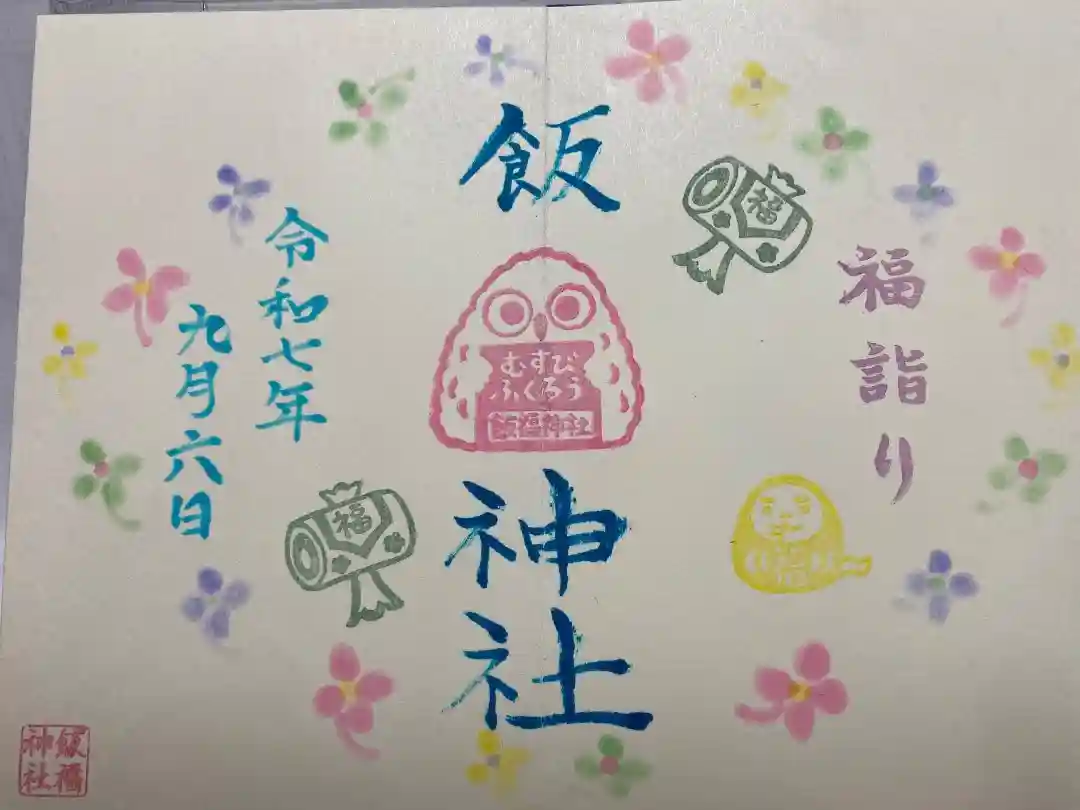 福詣り
福
飯
むすび
ふくろう
飯福神社
神社
令和七年
九月六日
福
飯福
神社